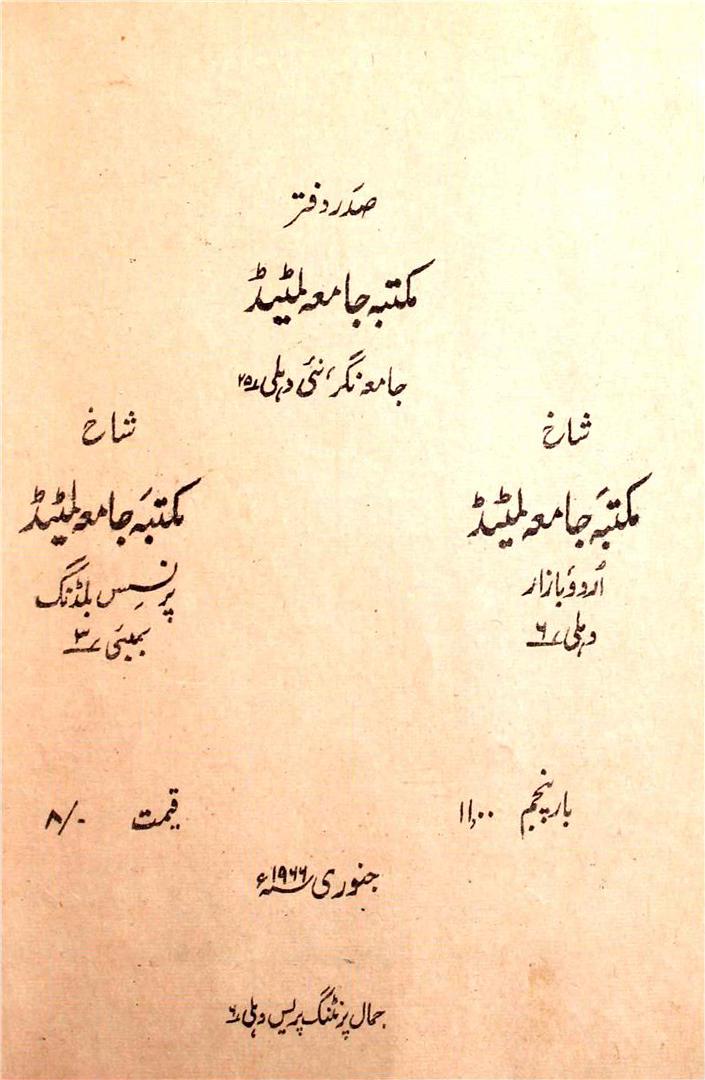 صدر دفتر
مکتبہ جامعہ لمٹیڈ
جامعہ نگر، نئی دہلی ۲۵
شاخ
مکتبہ جامعہ لمٹیڈ
اردو بازار
دہلی ۶
شاخ
مکتبہ جامعہ لمٹیڈ
پرنسس بلڈنگ
بمبئی ۳
بار پنجم ۱۱۰۰
قیمت ۸/-
جنوری ۱۹۶۶ء
جمال پرنٹنگ پریس دہلی ۶